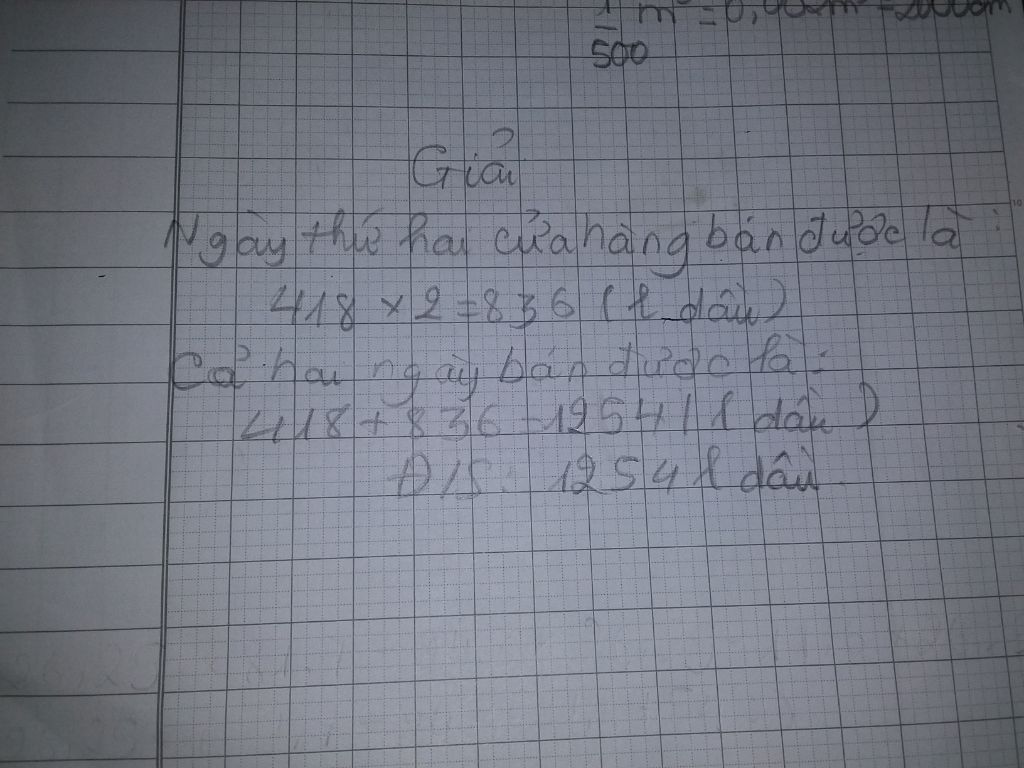 1/500 m = 0,
Giải
Ngày thứ hai cửa hàng bán được là :
418 × 2 = 836 (l dầu)
Cả hai ngày bán được là :
418 + 836 = 1254 ( l dầu )
Đ/S : 1254 l dầu